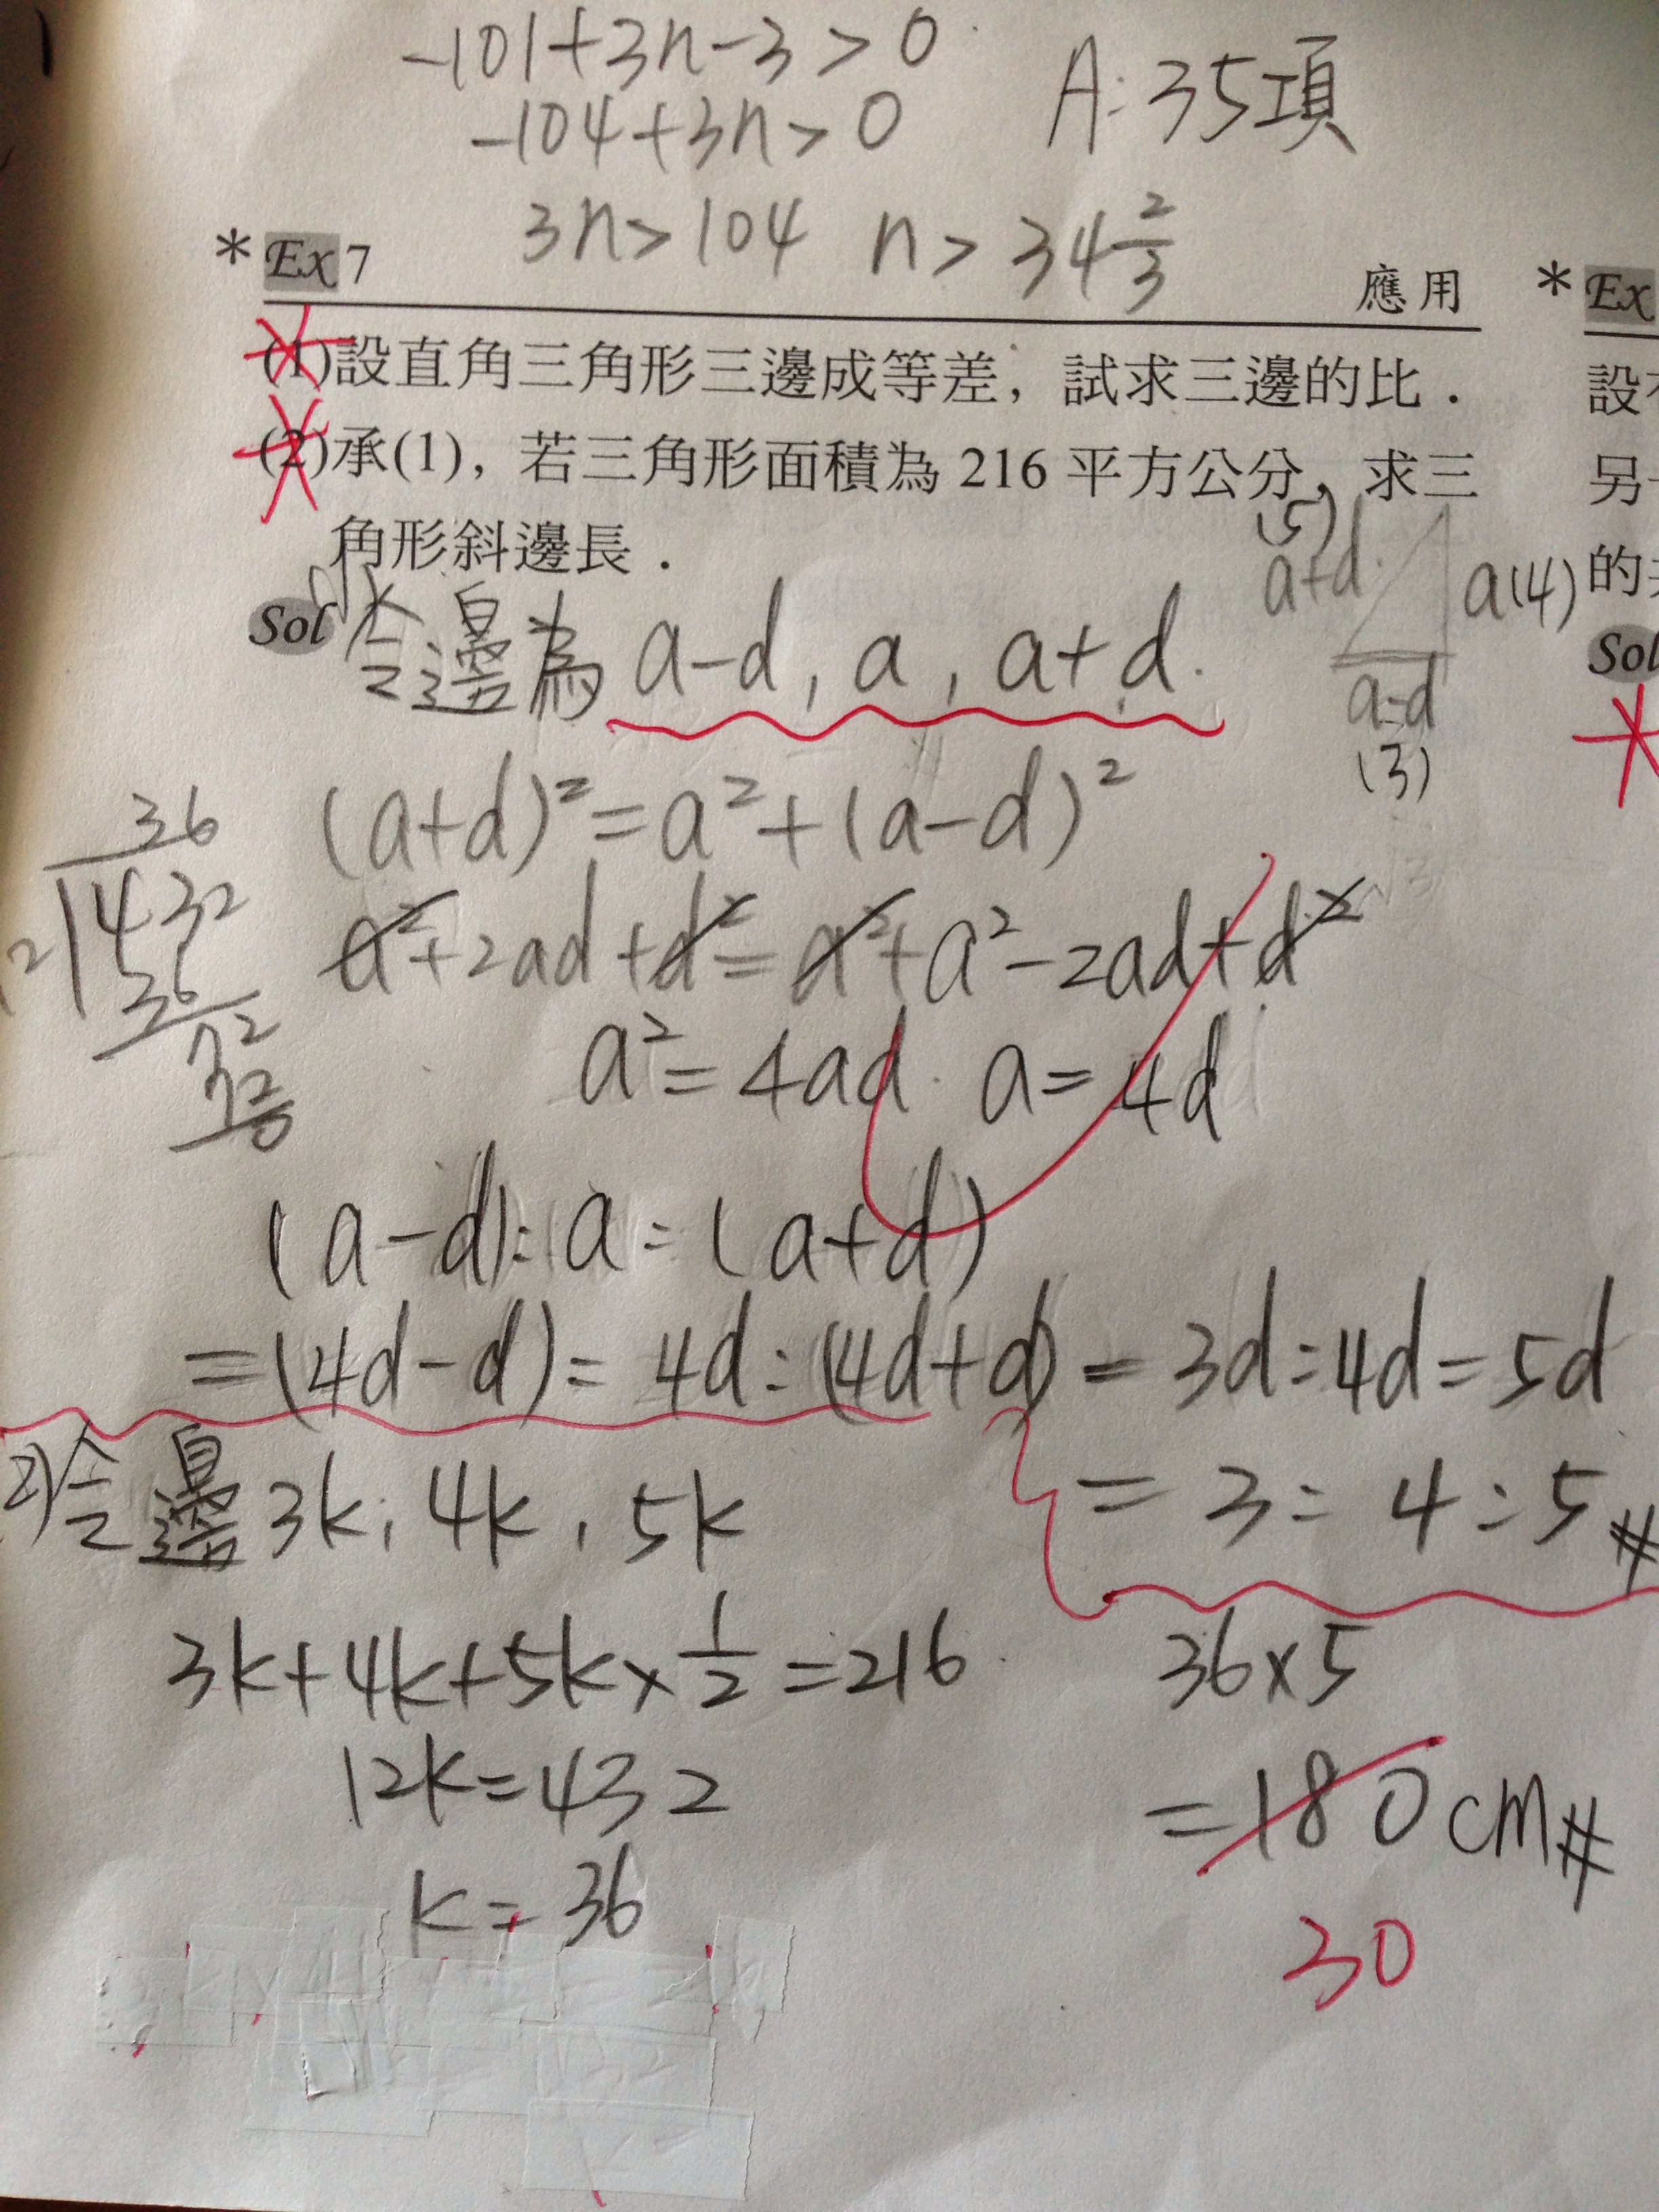 -101+3n-3>0
-104+3n>0 A:35項
3n>104 n>34 2/3
*Ex7
應用
*Ex
(1)設直角三角形三邊成等差，試求三邊的比．
(2)承(1)，若三角形面積為 216 平方公分，求三
角形斜邊長．
(5)
a+d
a(4)
a-d
(3)
設
另
的
Sol
Sol 令邊為 a-d, a, a+d.
(a+d)²=a²+(a-d)²
a²+2ad+d²=a²+a²-2ad+d²
a²=4ad. a=4d
36
12 432
36
72
72
0
(a-d):a:(a+d)
=(4d-d):4d:(4d+d)=3d:4d:5d
=3:4:5#
(2)令邊3k, 4k, 5k
3k+4k+5k×1/2=216
12k=432
k=36
36×5
=180cm#
30